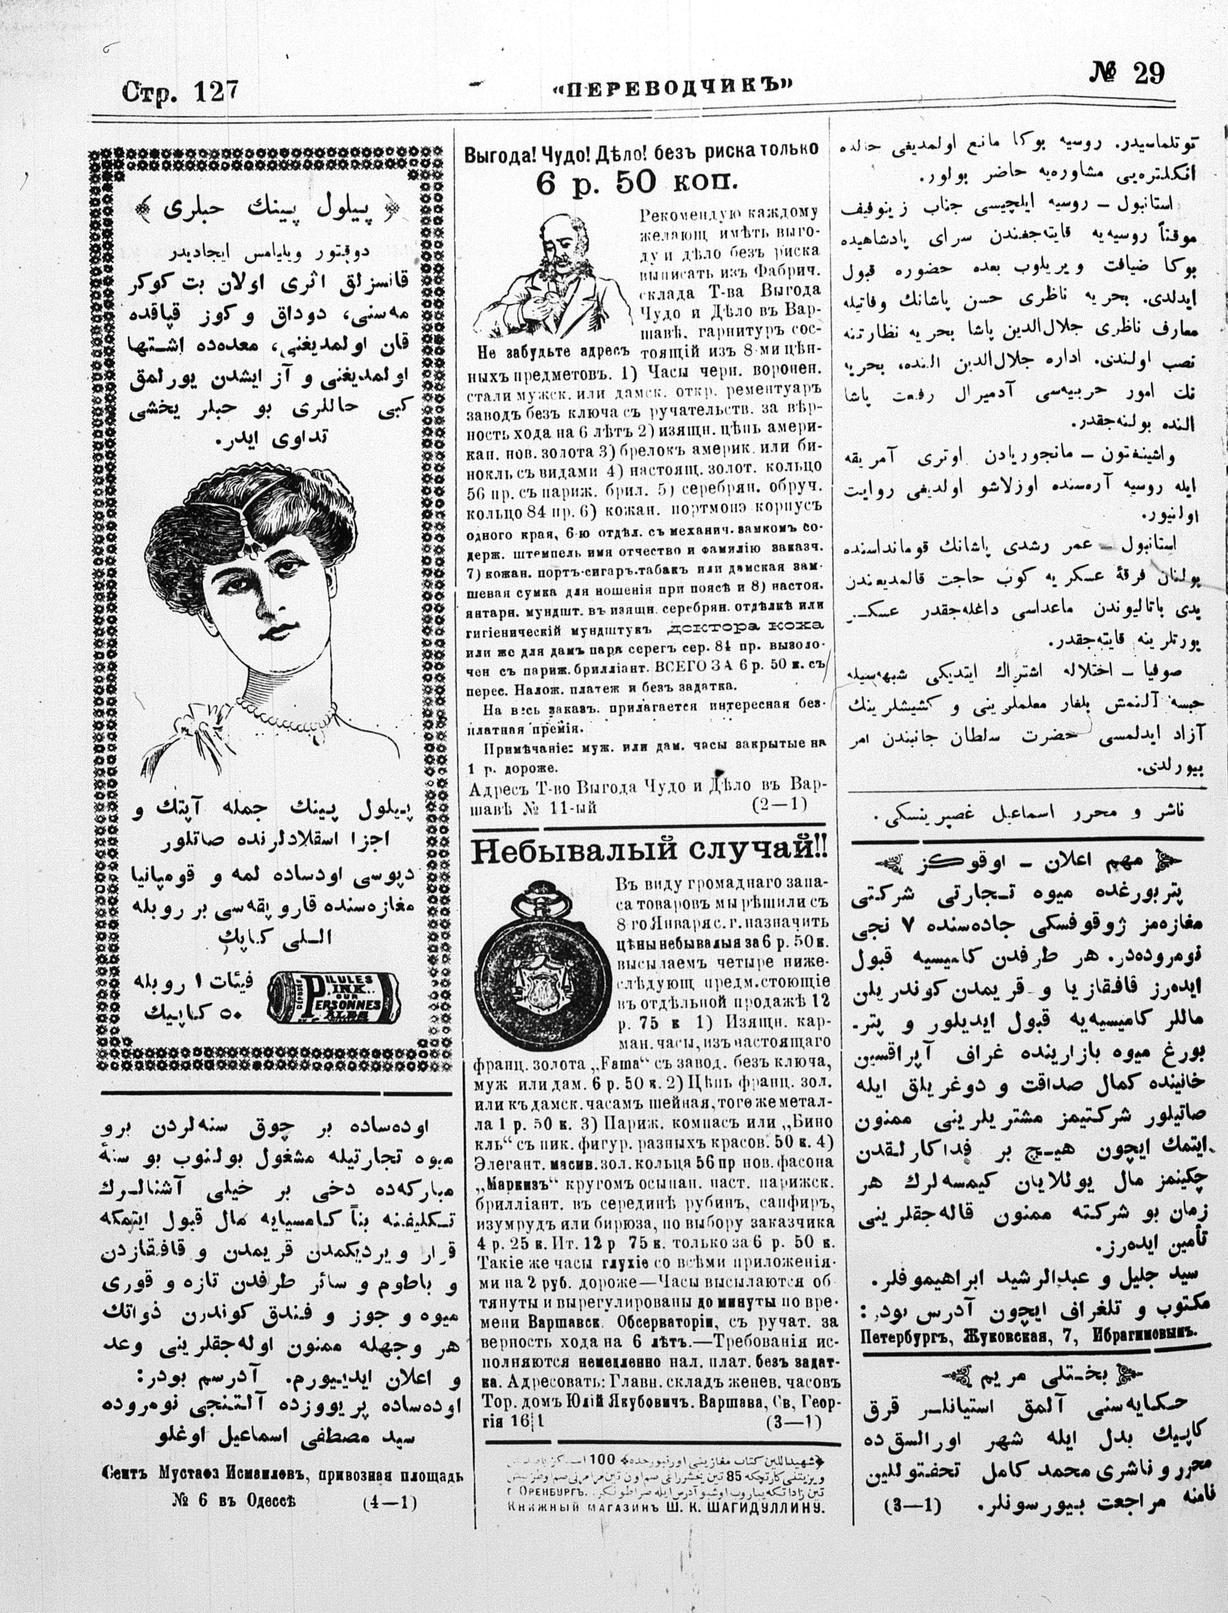 Стр. 127
«ПЕРЕВОДЧИКЪ»
№ 29
﴿ پیلول پینك حبلری ﴾
دوقتور ویلیامس ایجادیدر
قانسزلق اثری اولان بت کوکر
مه‌سنی، دوداق و کوز قپاقده
قان اولمدیغنی، معده‌ده اشتها
اولمدیغنی و آز ایشدن یورلمق
کبی حاللری بو حبلر یخشی
تداوی ایدر.
پیلول پینك جمله آپتك و
اجزا اسقلادلرنده صاتلور
دپوسی اودساده لمه و قومپانیا
مغازه‌سنده قارویقه‌سی بر روبله
اللی کاپك
فیئات ۱ روبله
۵۰ کاپیك
PILULES
PINK
PERSONNES
اوده‌ساده بر چوق سنه‌لردن برو
میوه تجارتیله مشغول بولنوب بو سنۀ
مبارکه‌ده دخی بر خیلی آشنالرك
تکلیفنه بناً کامسیایه مال قبول ایتمکه
قرار ویردیکمدن قریمدن و قافقازدن
و باطوم و سائر طرفدن تازه و قوری
میوه و جوز و فندق کوندرن ذواتك
هر وجهله ممنون اوله‌جقلرینی وعد
و اعلان ایدییورم. آدرسم بودر:
اوده‌ساده پریووزده آلتنجی نومروده
سید مصطفی اسماعیل اوغلو
Сеитъ Мустафа Исмаиловъ, привозная площадь
№ 6 въ Одессѣ (4—1)
Выгода! Чудо! Дѣло! безъ риска только
6 р. 50 коп.
Рекомендую каждому
желающ. имѣть выго-
ду и дѣло безъ риска
выписать изъ Фабрич.
склада Т-ва Выгода
Чудо и Дѣло въ Вар-
шавѣ. гарнитуръ сос-
Не забудьте адресъ тоящій изъ 8-ми цѣн-
ныхъ предметовъ. 1) Часы черн. воронен.
стали мужск. или дамск. откр. рементуаръ
заводъ безъ ключа съ ручательств. за вѣр-
ность хода на 6 лѣтъ 2) изящн. цѣпь амери-
кан. нов. золота 3) брелокъ америк. или би-
нокль съ видами 4) настоящ. золот. кольцо
56 пр. съ париж. брил. 5) серебрян. обруч.
кольцо 84 пр. 6) кожан. портмонэ корпусъ
одного края, 6-ю отдѣл. съ механич. замкомъ со-
держ. штемпель имя отчество и фамилію заказч.
7) кожан. портъ-сигаръ.табакъ или дамская зам-
шевая сумка для ношенія при поясѣ и 8) настоя.
янтарн. мундшт. въ изящн. серебрян. отдѣлкѣ или
гигіеническій мундштукъ доктора кожа
или же для дамъ пара серегъ сер. 84 пр. вызоло-
чен съ париж. брилліант. ВСЕГО ЗА 6 р. 50 к. съ
перес. Налож. платеж и безъ задатка.
На весь заказъ. прилагается интересная без-
платная премія.
Примѣчаніе: муж. или дам. часы закрытые на
1 р. дороже.
Адресъ Т-во Выгода Чудо и Дѣло въ Вар-
шавѣ № 11-ый (2—1)
Небывалый случай!!
Въ виду громаднаго запа-
са товаровъ мы рѣшили съ
8-го Января с. г. назначить
цѣны небывалыя за 6 р. 50 к.
высылаемъ четыре ниже-
слѣдующ. предм. стоющіе
въ отдѣльной продажѣ 12
р. 75 к 1) Изящн. кар-
ман. часы, изъ настоящаго
франц. золота „Fama“ съ завод. безъ ключа,
муж или дам. 6 р. 50 к. 2) Цѣпь франц. зол.
или къ дамск. часамъ шейная, того же метал-
ла 1 р. 50 к. 3) Париж. компасъ или „Бино
кль“ съ пик. фигур. разныхъ красов. 50 к. 4)
Элегант. масив. зол. кольца 56 пр нов. фасона
„Маркизъ“ кругомъ осыпан. наст. парижск.
брилліант. въ серединѣ рубинъ, сапфиръ,
изумрудъ или бирюза, по выбору заказчика
4 р. 25 к. Ит. 12 р 75 к. только за 6 р. 50 к.
Такіе же часы глухіе со всѣми приложенія-
ми на 2 руб. дороже—Часы высылаются об
тянуты и вырегулированы до минуты по вре-
мени Варшавск. Обсерваторіи, съ ручат. за
верность хода на 6 лѣтъ.—Требованія ис-
полняются немедленно нал. плат. безъ задат-
ка. Адресовать: Главн. складъ женев. часовъ
Тор. домъ Юлій Якубовичъ. Варшава, Св, Геор-
гія 16|1 (3—1)
100
85
г Оренбургъ.
Книжный магазинъ Ш. К. Шагидуллину.
توتلماسیدر. روسیه بوکا مانع اولمدیغی حالده
انکلتره‌یی مشاوره‌یه حاضر بولور.
استانبول – روسیه ایلچیسی جناب زینوفیف
موقتاً روسیه‌یه قایته‌جغندن سرای پادشاهیده
بوکا ضیافت ویریلوب بعده حضوره قبول
ایدلدی. بحریه ناظری حسن پاشانك وفاتیله
معارف ناظری جلال‌الدین پاشا بحریه نظارتنه
نصب اولندی. اداره جلال‌الدین النده، بحریه
نك امور حربیه‌سی آدمیرال رفعت پاشا
النده بولنه‌جقدر.
واشینغتون – مانجوریادن اوتری آمریقه
ایله روسیه آره‌سنده اوزلاشو اولدیغی روایت
اولنیور.
استانبول – عمر رشدی پاشانك قومانداسنده
بولنان فرقۀ عسکریه کوب حاجت قالمدیغندن
یدی باتالیوندن ماعداسی داغله‌جقدر عسکر
یورتلرینه قایته‌جقدر.
صوفیا – اختلاله اشتراك ایتدیکی شبهه‌سیله
حبسه آلنمش بلغار معلملرینی و کشیشلرینك
آزاد ایدلمسی حضرت سلطان جانبندن امر
بیورلدی.
ناشر و محرر اسماعیل غصپرینسکی.
مهم اعلان – اوقوکز
پتربورغده میوه تجارتی شرکتی
مغازه‌مز ژوقوفسکی جاده‌سنده ۷ نجی
نومروده‌در. هر طرفدن کامیسیه قبول
ایده‌رز قافقازیا و قریمدن کوندریلن
ماللر کامیسیه‌یه قبول ایدیلور و پتر.
بورغ میوه بازارینده غراف آپراقسین
خانینده کمال صداقت و دوغریلق ایله
صاتیلور شرکتیمز مشتریلرینی ممنون
ایتمك ایچون هیچ بر فداکارلقدن
چکینمز مال یوللایان کیمسه‌لرك هر
زمان بو شرکته ممنون قاله‌جقلرینی
تأمین ایده‌رز.
سید جلیل و عبدالرشید ابراهیموفلر.
مکتوب و تلغرافی ایچون آدرس بودر:
Петербургъ, Жуковская, 7, Ибрагимовымъ.
بختلی مریم
حکایه‌سنی آلمق استیانلر قرق
کاپیك بدل ایله شهر اورالسق ده
محرر و ناشری محمد کامل تحفتوللین
نامنه مراجعت بیورسونلر. (3—1)